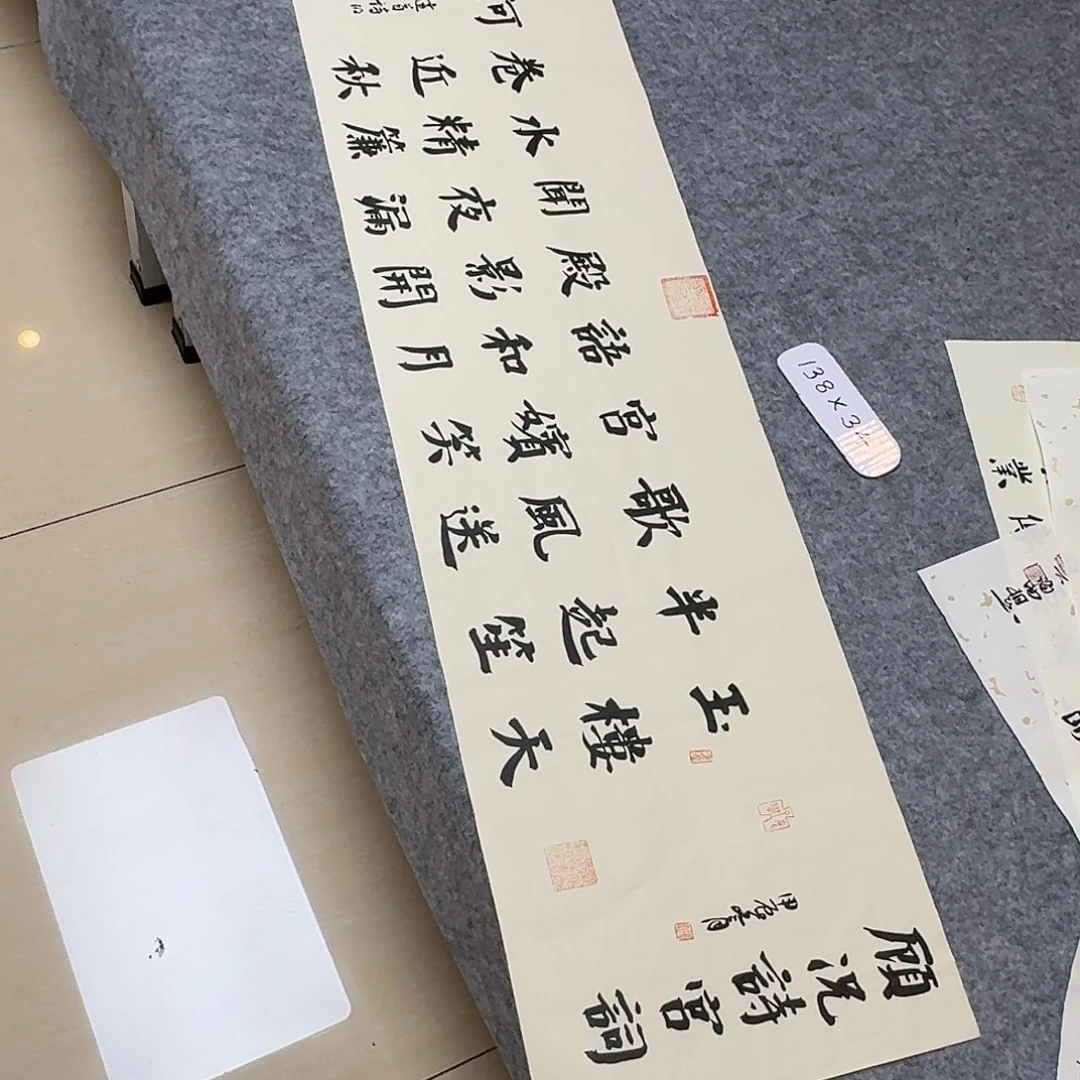 顧况詩宮詞
甲辰
玉樓天
半起笙
歌風送
宮嬪笑
語和月
殿影開
聞夜漏
水精簾
卷近秋
河
138×34
業